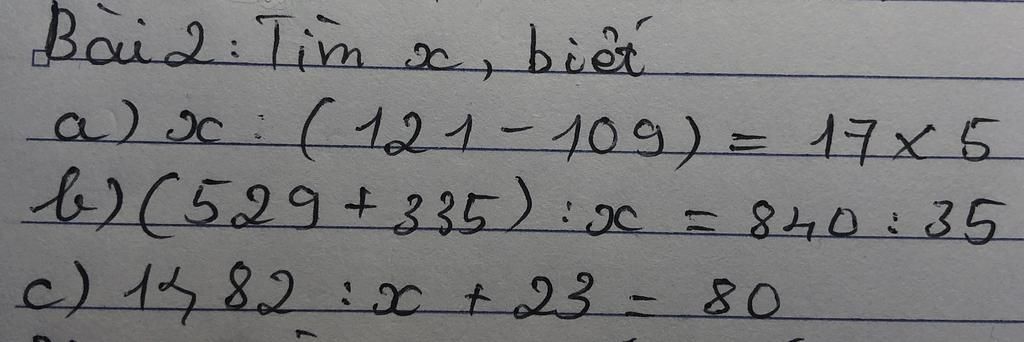 Bài 2: Tìm x, biết
a) x : (121 - 109) = 17 x 5
b) (529 + 335) : x = 840 : 35
c) 1482 : x + 23 = 80